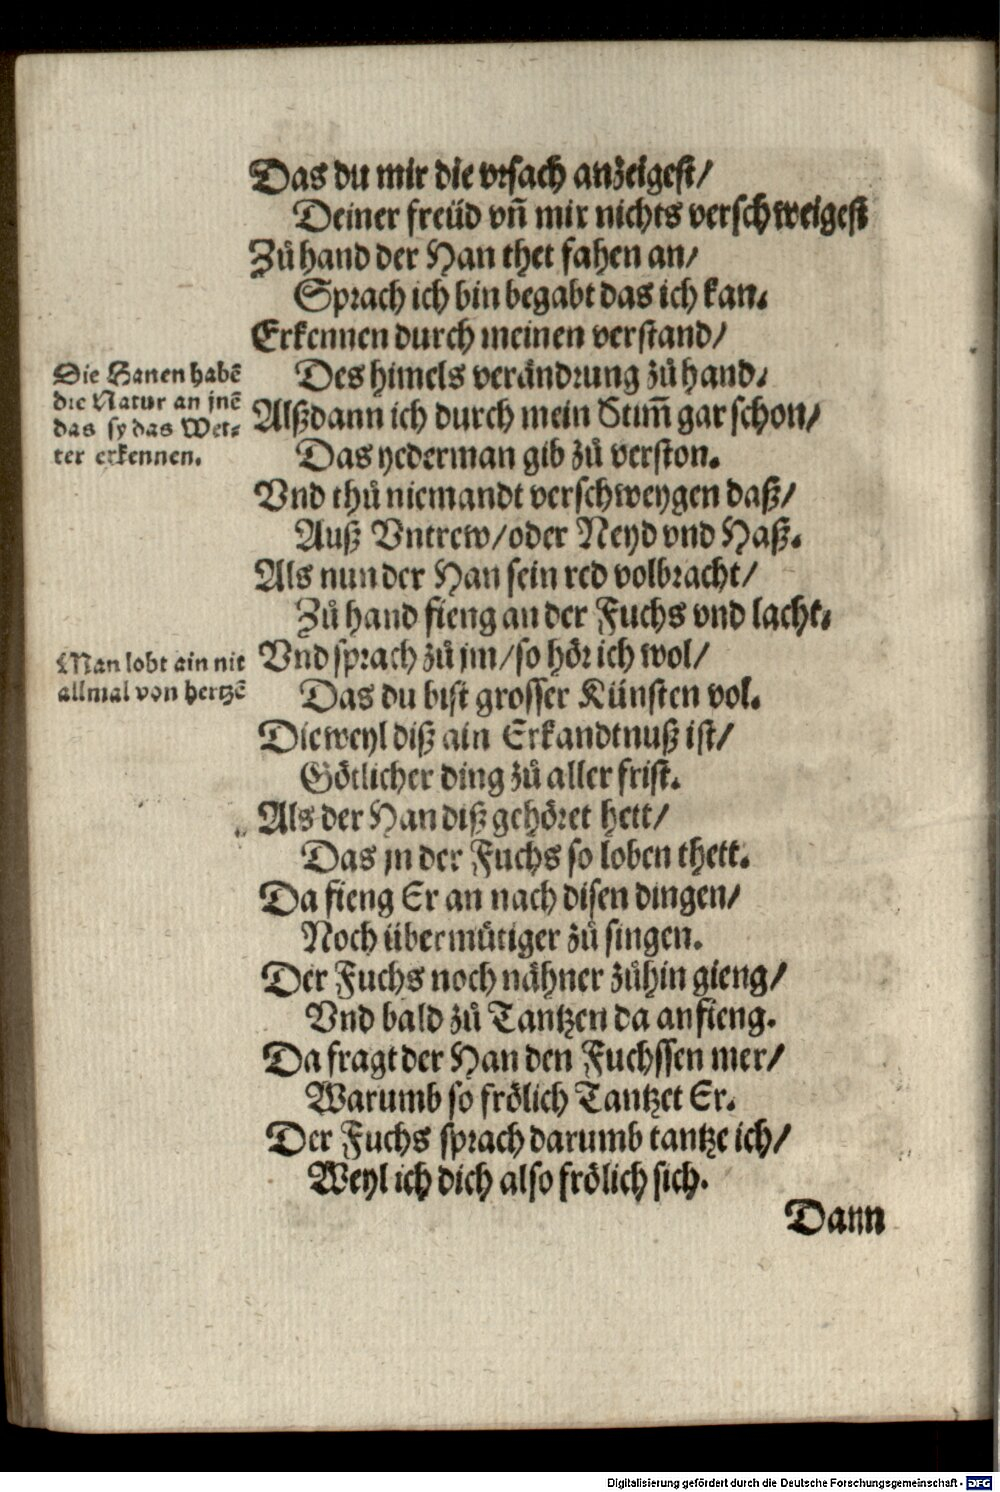 Das du mir die vrsach anzeigest/
Deiner freüd vn̄ mir nichts verschweigest
Zů hand der Han thet fahen an/
Sprach ich bin begabt das ich kan.
Erkennen durch meinen verstand/
Des himels verändrung zů hand.
Alßdann ich durch mein Stim̄ gar schon/
Das yederman gib zů verston.
Vnd thů niemandt verschweygen daß/
Auß Vntrew/oder Neyd vnd Haß.
Als nun der Han sein red volbracht/
Zů hand fieng an der Fuchs vnd lacht.
Vnd sprach zů jm/so hör ich wol/
Das du bist grosser Künsten vol.
Dieweyl diß ain Erkandtnuß ist/
Götlicher ding zů aller frist.
Als der Han diß gehöret hett/
Das jn der Fuchs so loben thett.
Da fieng Er an nach disen dingen/
Noch übermütiger zů singen.
Der Fuchs noch nähner zůhin gieng/
Vnd bald zů Tantzen da anfieng.
Da fragt der Han den Fuchssen mer/
Warumb so frölich Tantzet Er.
Der Fuchs sprach darumb tantze ich/
Weyl ich dich also frölich sich.
Dann
Die Hanen habē
die Natur an jnē
das sy das Wet-
ter erkennen.
Man lobt ain nit
allmal von hertzē
Digitalisierung gefördert durch die Deutsche Forschungsgemeinschaft - DFG